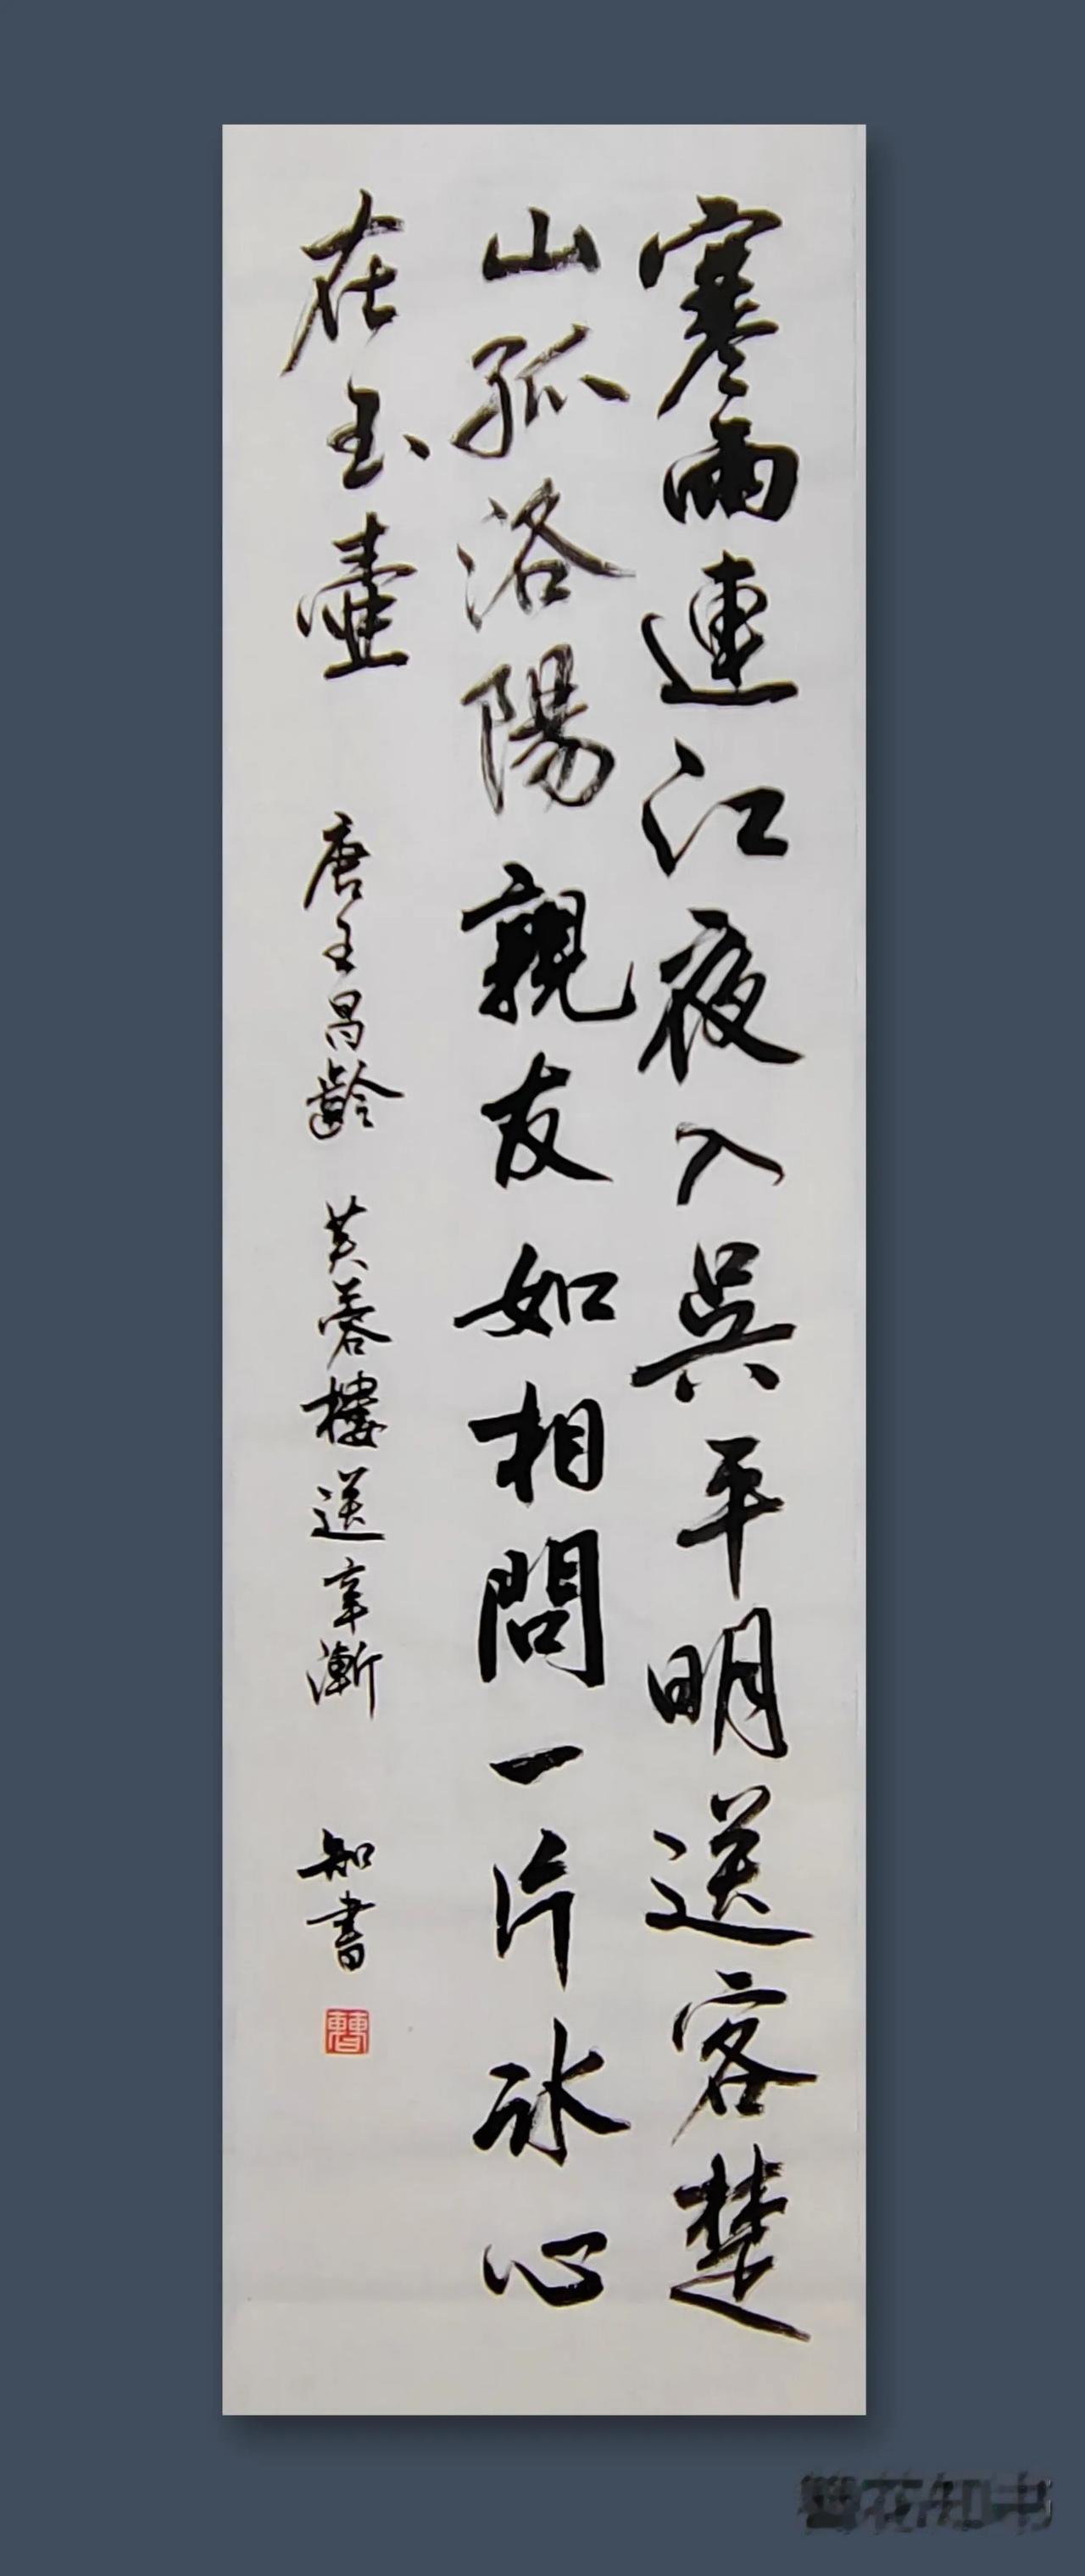 寒雨連江夜入吳平明送客楚
山孤洛陽親友如相問一片冰心
在玉壺
唐王昌齡 芙蓉樓送辛漸
知書
花知书